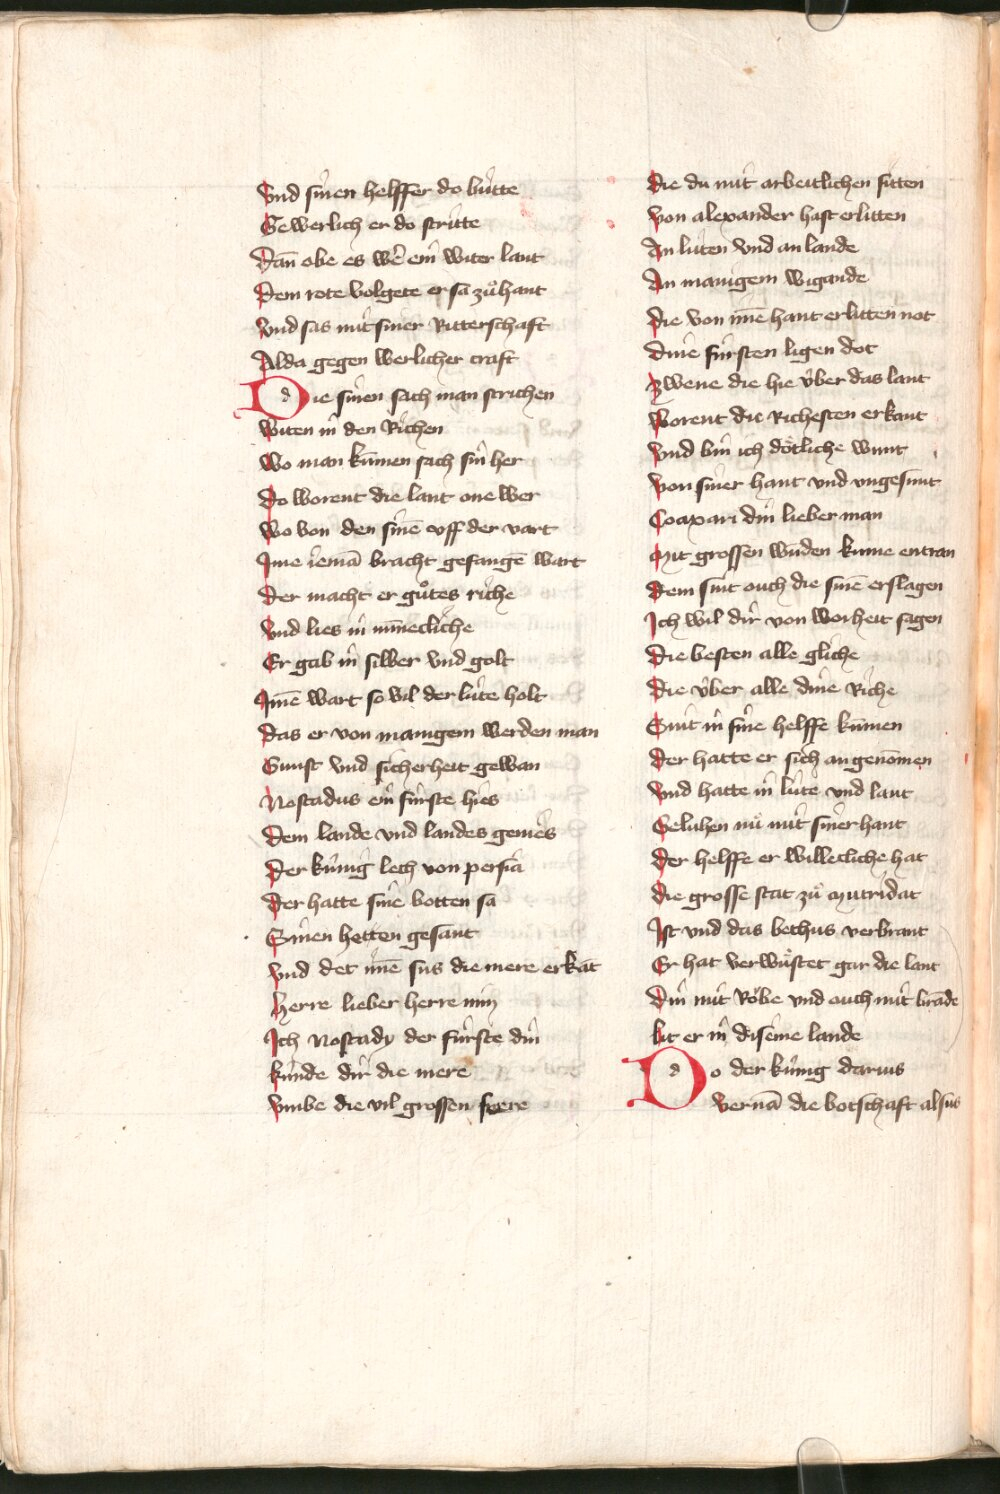 Vnd sinen helffer do bútte
Gewerlich er do stritte
Dañ obe es wer̄ ein witer lant
Dem rote volgete er sa zůhant
Vnd sas mit siner Ritterschaft
Alda gegen werlicher craft
Die sinen sach man strichen
Witen in den Richen
Wo man kūmen sach sin her
Do worent die lant one wer
Wo von den sinē vff der vart
Ime iemā bracht gefangē wart
Der macht er gůtes riche
Vnd lies in miñecliche
Er gab in silber vnd golt
Imē wart so vil der lúte holt
Das er von manigem werden man
Gunst vnd sicherheit gewan
Nostadus ein fúrste hies
Dem lande vnd landes genies
Der kúnig lech von persia
Der hatte sine botten sa
Sinen hetten gesant
Vnd det imē sus die mere erkāt
Herre lieber herre min
Ich Nostady der fúrste din
kúnde dir die mere
Vmbe die vil grossen swere
Die du mit arbeitlichen sitten
Von alexander hast erlitten
An lúten vnd an lande
An manigem wigande
Die von imē hant erlitten not
Dine fúrsten ligen dot
Zwene die hie úber das lant
Worent die Richesten erkant
Vnd bin ich dötliche wunt
Von siner hant vnd vngesunt
Coaxari din lieber man
Mit grossen wūden kume entran
Dem sint ouch die sinē erslagen
Ich wil dir von worheit sagen
Die besten alle gliche
Die úber alle dine Riche
Sint in sine helffe kūmen
Der hatte er sich angenōmen
Vnd hatte in lúte vnd lant
Geluhen nů mit siner hant
Der helffe er willecliche hat
Die grosse stat zů Mutridat
Ist vnd das bethus verbrant
Er hat verwůstet gar die lant
Din mit Röbe vnd ouch mit brāde
Lit er in diseme lande
Do der kúnig darius
Vernā die botschaft alsus